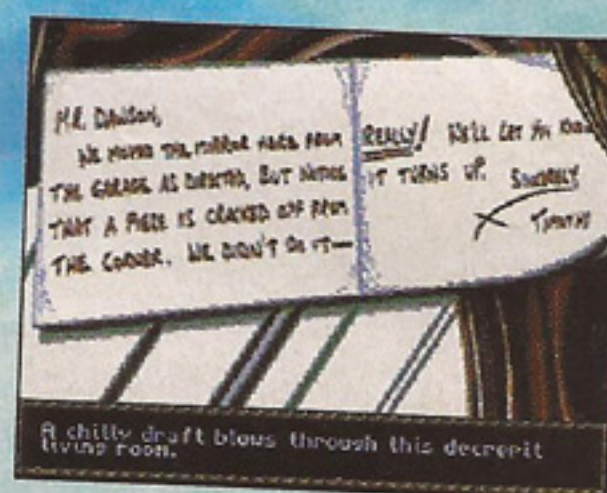 MR. DAWSON,
WE MOVED THE MIRROR HERE FROM
THE GARAGE AS DIRECTED, BUT NOTICE
THAT A PIECE IS CRACKED OFF FROM
THE CORNER. WE DIDN'T DO IT—
REALLY! WE'LL LET YOU KNOW
IF IT TURNS UP.
SINCERELY
TIMOTHY
A chilly draft blows through this decrepit
living room.